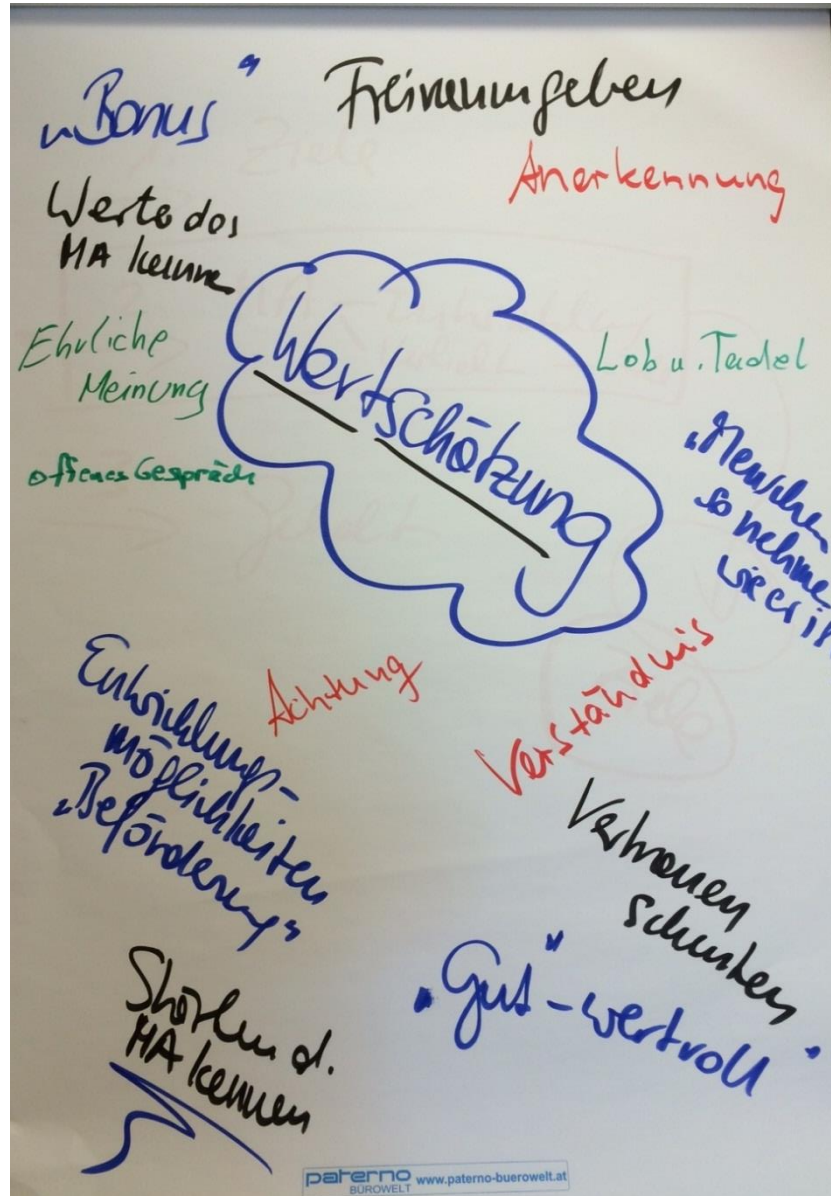 „Bonus“
Freiraum geben
Anerkennung
Werte des
MA kenne
Ehrliche
Meinung
offenes Gespräch
Wertschätzung
Lob u. Tadel
„Menschen
so nehme
wie er is
Achtung
Verständnis
Entwicklungs-
möglichkeiten
„Beförderung“
Vertrauen
schenken
„Gut“-wertvoll"
Stärken d.
MA kennen
paterno
BÜROWELT
www.paterno-buerowelt.at
Ziele